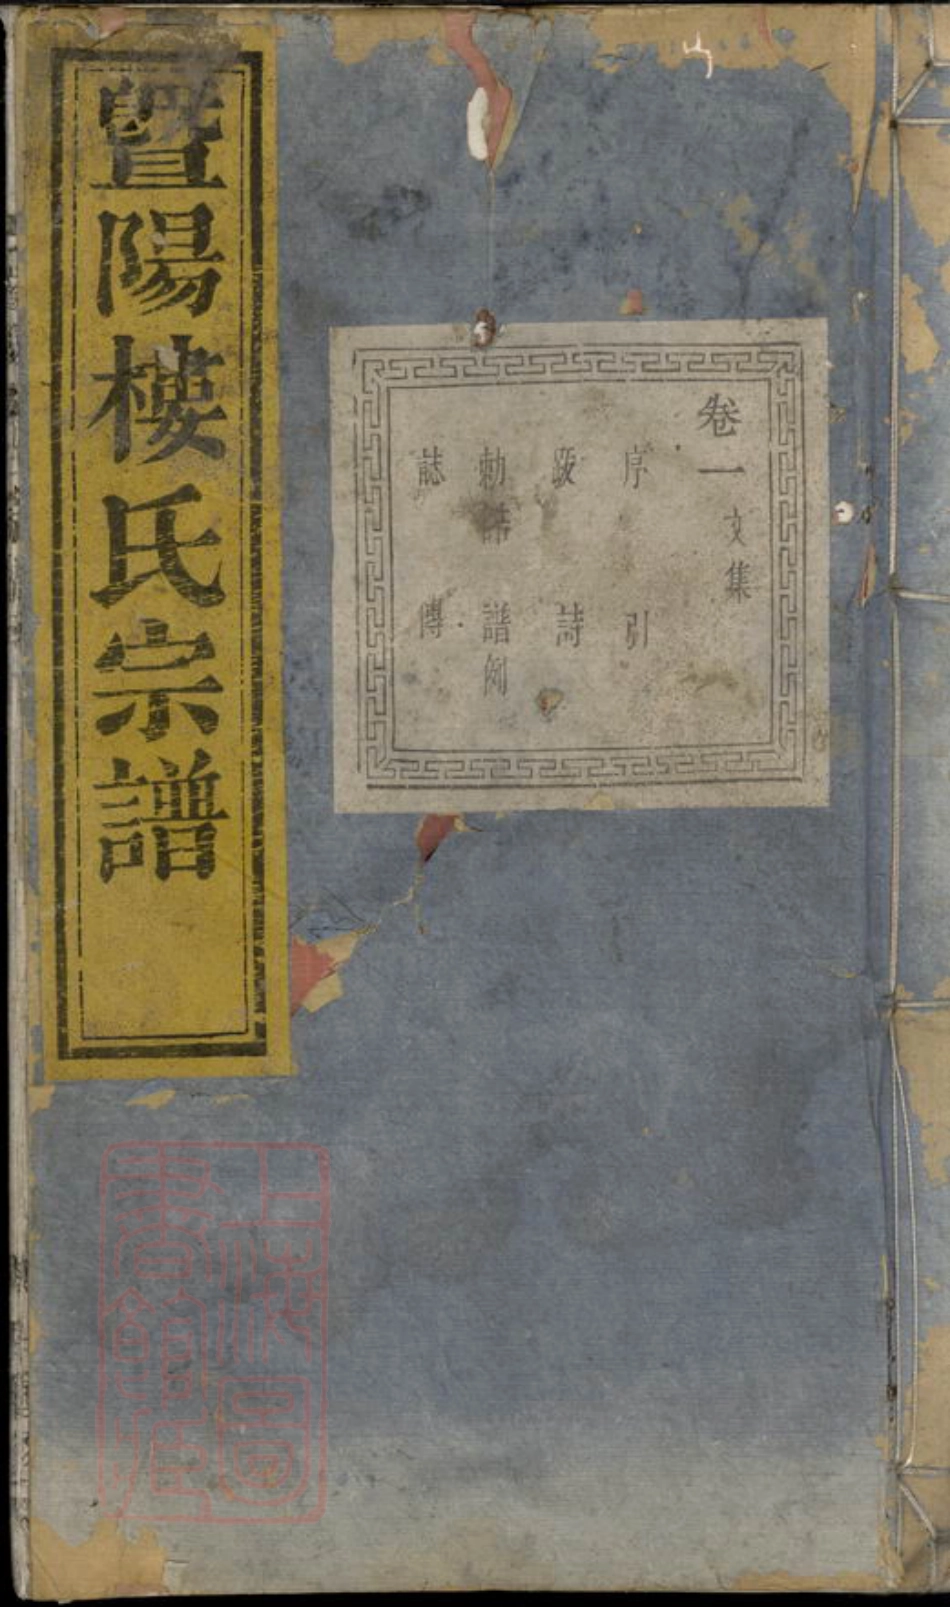 暨陽樓氏宗譜
卷一文集
序 引
跋 詩
勅誥 譜例
誌 傳
上海圖
書館藏